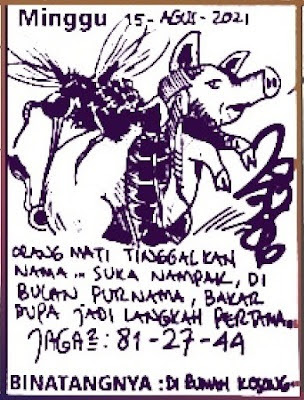 Minggu 15-AGUS-2021
ORANG MATI TINGGALKAN
NAMA... SUKA NAMPAK, DI
BULAN PURNAMA, BAKAR
DUPA JADI LANGKAH PERTAMA.
JAGA²: 81-27-44
BINATANGNYA : DI RUMAH KOSONG